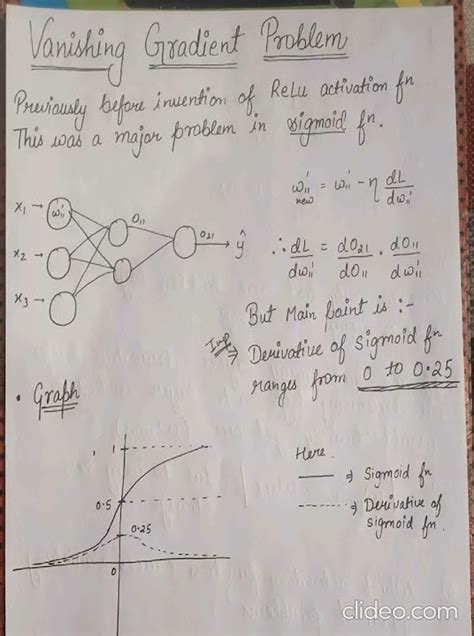 Vanishing Gradient Problem
Previously before invention of ReLu activation fn
This was a major problem in sigmoid fn.
x₁ → w₁₁' O₁₁
x₂ → O₂₁ ŷ
x₃ →
w₁₁' new = w₁₁' - η dL/dw₁₁'
∴ dL/dw₁₁' = dO₂₁/dO₁₁ . dO₁₁/dw₁₁'
But Main point is :-
Imp ⇒ Derivative of Sigmoid fn
ranges from 0 to 0.25
• Graph
1
0.5
0.25
0
Here
—— ⇒ Sigmoid fn
------ ⇒ Derivative of
sigmoid fn.
clideo.com